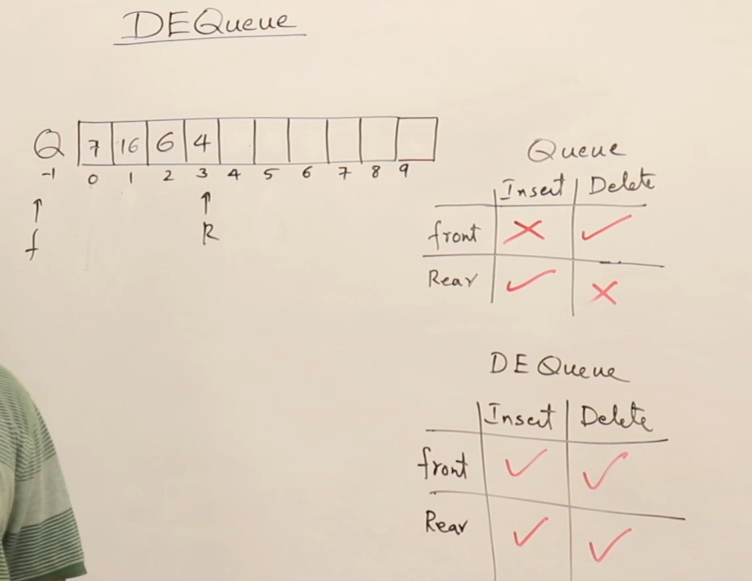 DEQueue
Q 7 16 6 4
-1 0 1 2 3 4 5 6 7 8 9
f R
Queue
Insert Delete
front ✗ ✓
Rear ✓ ✗
DEQueue
Insert Delete
front ✓ ✓
Rear ✓ ✓